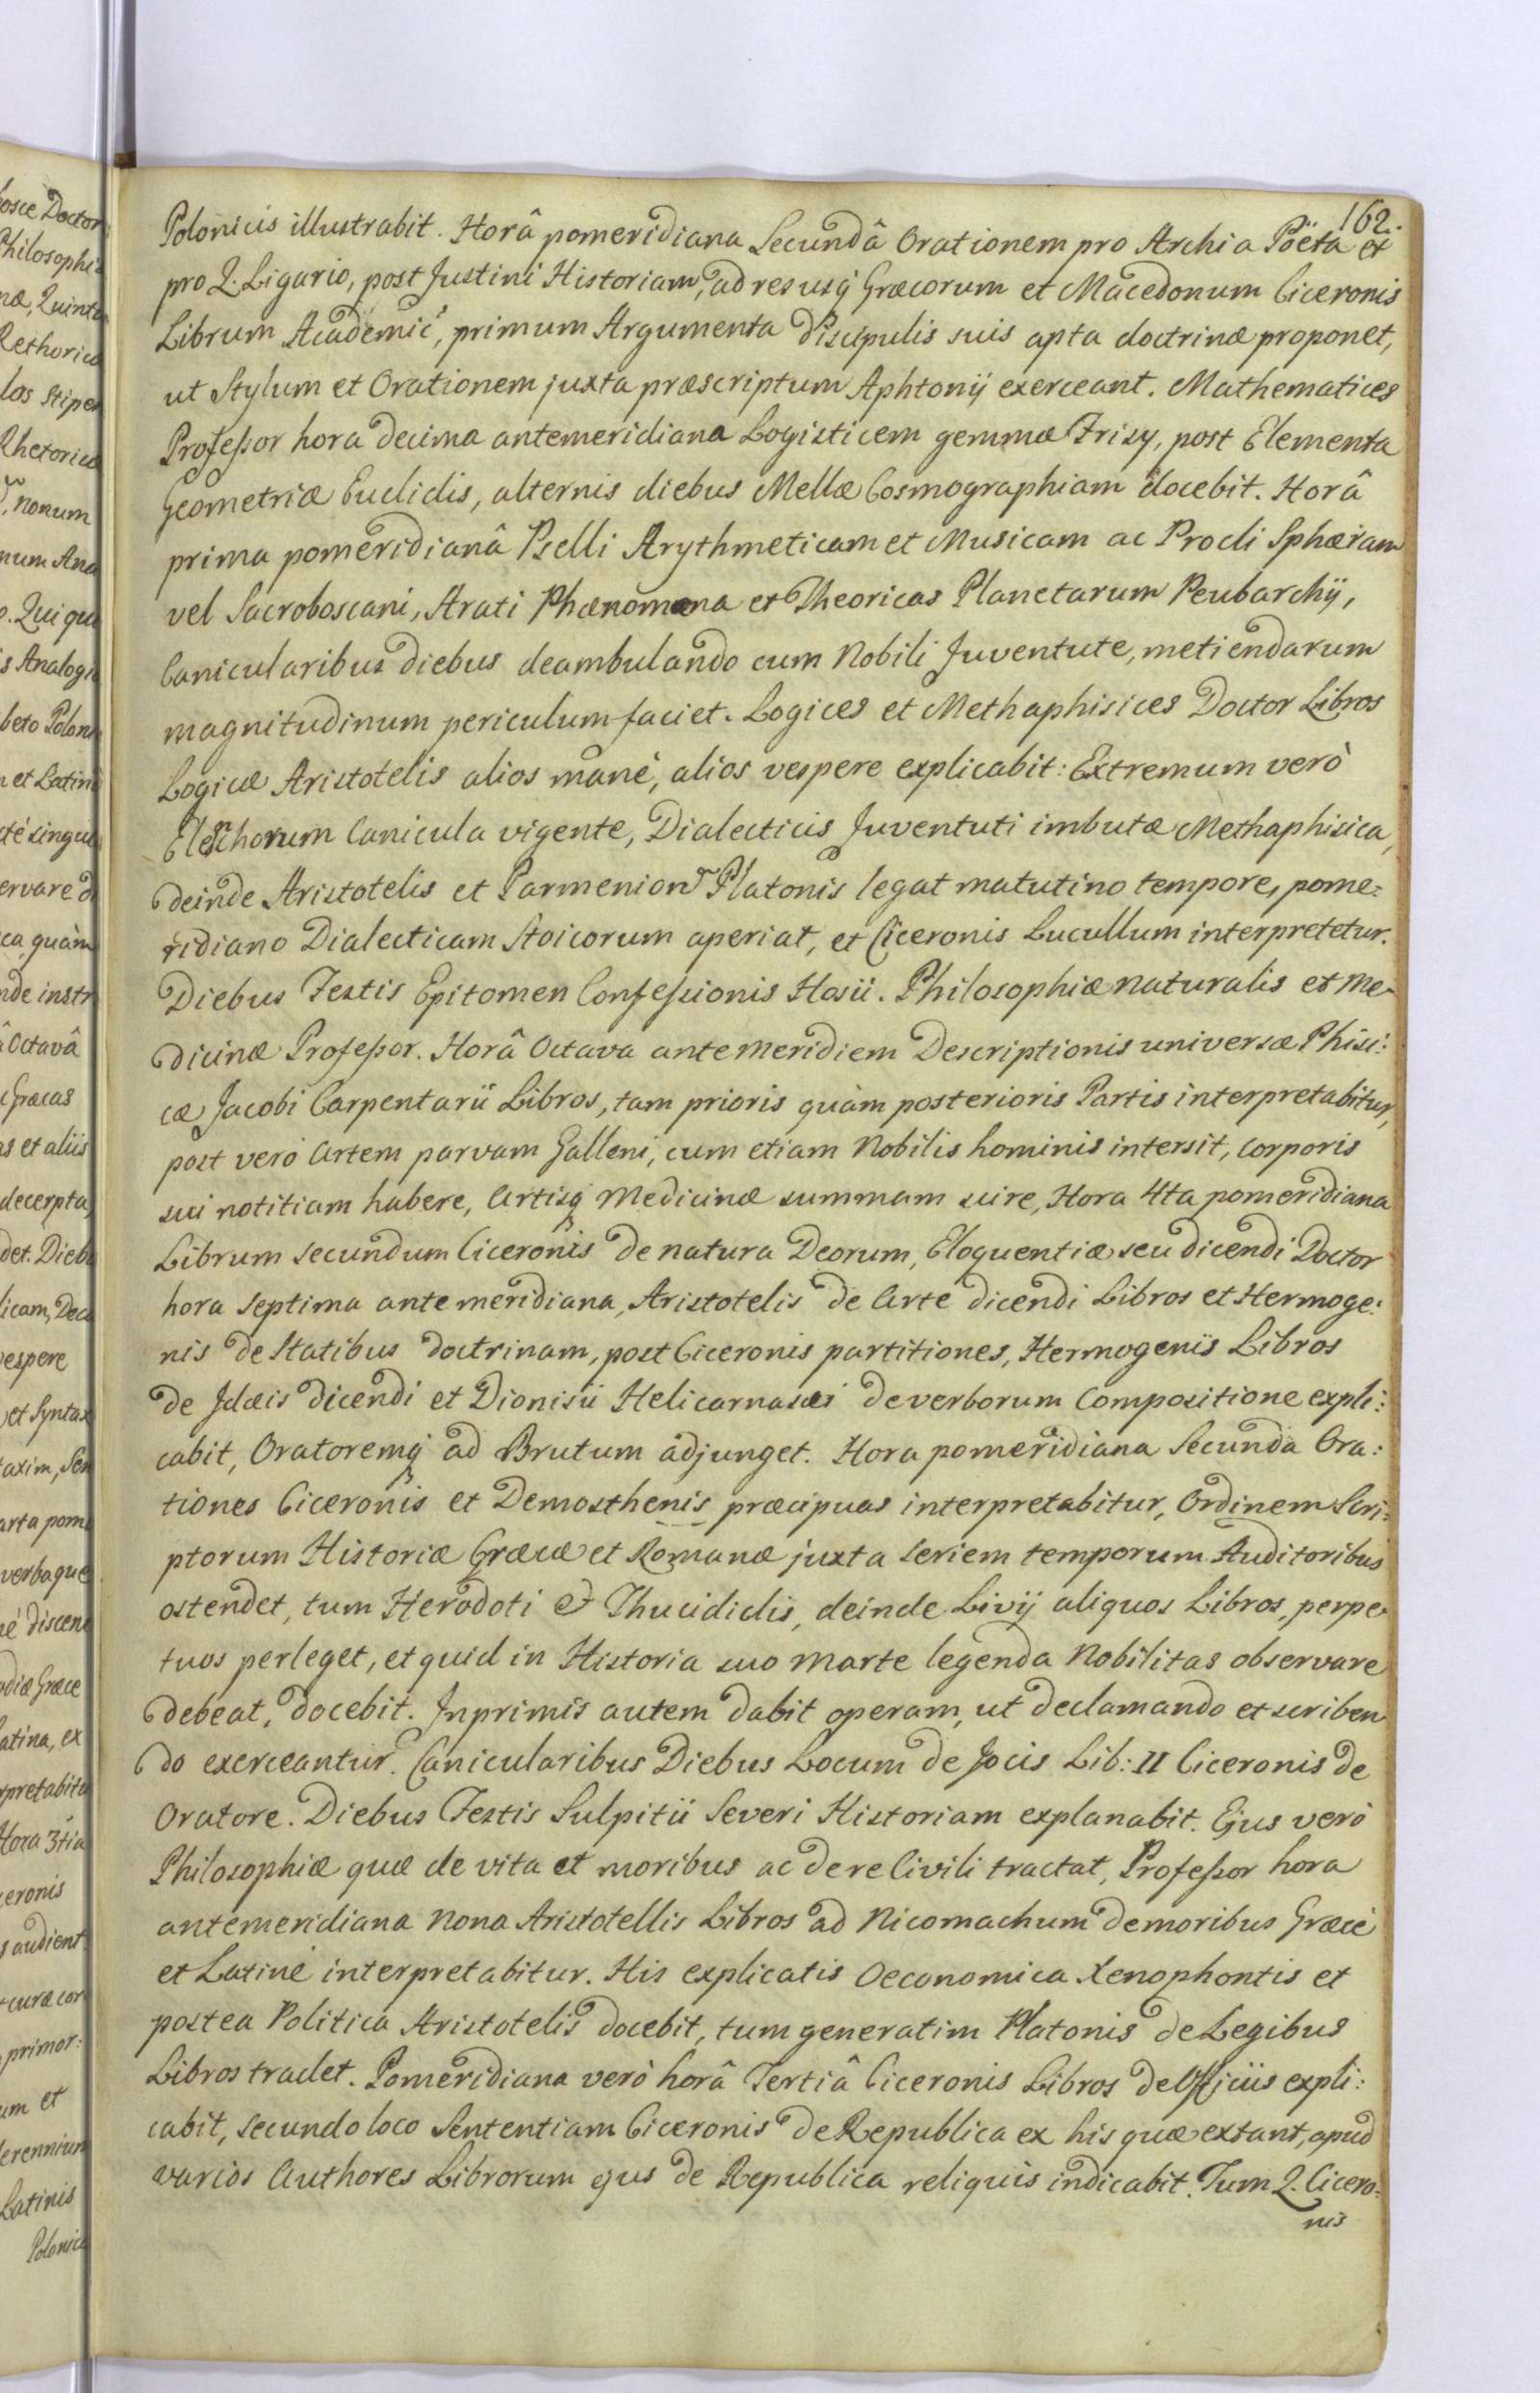 162.
Polonicis illustrabit. Horâ pomeridiana Secundâ Orationem pro Archia Poëta et
pro Q. Ligario, post Justini Historiam, ad res usq́ Græcorum et Macedonum Ciceronis
Librum Academić, primum Argumenta Discipulis suis apta doctrinæ proponet,
ut Stylum et Orationem juxta præscriptum Aphtonÿ exerceant. Mathematices
Profeſsor hora decima antemeridiana Logisticem gemmæ Frisy, post Elementa
Geometriæ Euclidis, alternis diebus Mellæ Cosmographiam docebit. Horâ
prima pomeridianâ Pselli Arythmeticam et Musicam ac Procli Sphæram
vel Sacroboscani, Arati Phænomæna et Theoricas Planetarum Peubarchÿ,
Canicularibus diebus deambulando cum Nobili Juventute, metiendarum
magnitudinum periculum faciet. Logices et Methaphisices Doctor Libros
Logicæ Aristotelis alios mané, alios vespere explicabit: Extremum verò
Elenchorum Canicula vigente, Dialecticis Juventuti imbutæ Methaphisica,
deinde Aristotelis et Parmenion̄ Platonis legat matutino tempore, pome:
ridiano Dialecticam Stoicorum aperiat, et Ciceronis Lucullum interpretetur.
Diebus Festis Epitomen Confeſsionis Hosii. Philosophiæ naturalis et Me-
dicinæ Profeſsor. Horâ Octava ante meridiem Descriptionis universæ Phisi:
cæ Jacobi Carpentarii Libros, tam prioris quàm posterioris Partis interpretabitur,
post verò Artem parvam Galleni, cum etiam Nobilis hominis intersit, corporis
sui notitiam habere, Artisq́ Medicinæ summam scire, Hora 4ta pomeridiana
Librum secundum Ciceronis de natura Deorum, Eloquentiæ seu dicendi Doctor
hora septima ante meridiana, Aristotelis de Arte dicendi Libros et Hermoge:
nis de Statibus doctrinam, post Ciceronis partitiones, Hermogenis Libros
de Idæis dicendi et Dionisii Helicarnasæi de verborum Compositione expli:
cabit, Oratoremq́ ad Brutum adjunget. Hora pomeridiana Secunda Ora:
tiones Ciceronis et Demosthenis præcipuas interpretabitur, Ordinem Scri:
ptorum Historiæ Græcæ et Romanæ juxta seriem temporum Auditoribus
ostendet, tum Herodoti & Thucididis, deinde Livÿ aliquos Libros, perpe-
tuos perleget, et quid in Historia suo Marte legenda Nobilitas observare
debeat, docebit. Inprimis autem dabit operam, ut declamando et scriben
do exerceantur. Canicularibus Diebus Locum de Jocis Lib: II Ciceronis de
Oratore. Diebus Festis Sulpitii Severi Historiam explanabit. Ejus verò
Philosophiæ quæ de vita et moribus ac de re Civili tractat, Profeſsor hora
antemeridiana nona Aristotellis Libros ad Nicomachum de moribus Græcè
et Latinè interpretabitur. His explicatis Oeconomica Xenophontis et
postea Politica Aristotelis docebit, tum generatim Platonis de Legibus
Libros tradet. Pomeridiana verò horâ Tertiâ Ciceronis Libros de Officiis expli:
cabit, secundo loco Sententiam Ciceronis de Republica ex his quæ extant, apud
varios Authores Librorum ejus de Republica reliquis indicabit. Tum Q. Cicero:
nis